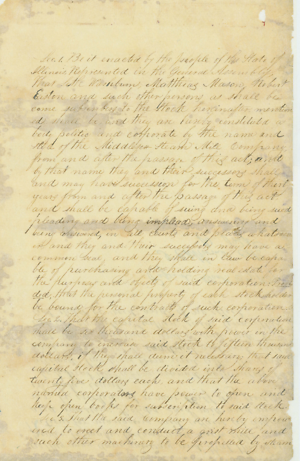 Sec 1 Be it enacted by the people of the State of
Illinois Represented in the General Assembly
That Matthew Robert
Easton and such other persons as shall be
come subscribers to the Stock hereinafter mention
ed shall be and they are hereby constituted
body politic and corporate by the name and
style of the Steam Mill Company
from and after the passage of this act, and
by that name they and their successors shall
and may have succession for the term of
years from and after the passage of this act
and shall be capable of suing and being sued
pleading and being impleaded answering and
being answered in all courts and places whatsoever
And they and their successors may have a
common seal, and they shall in law be capa
ble of purchasing and holding real estate for
the purposes and objects of said corporation
ded that the personal property of each stockholder
be bound for the contracts of such corporation
2 The capital stock of said corporation
shall be thousand dollars with power in the
company to increase said stock to fifteen thousand
dollars, if they shall deem it necessary that said
capital stock shall be divided into shares of
twenty five dollars each and that the above
named corporators have power to open and
keep open books for subscription to said stock
3 that the said Company are hereby empow
ered to erect and conduct a mill and
such other machinery to be propelled by steam